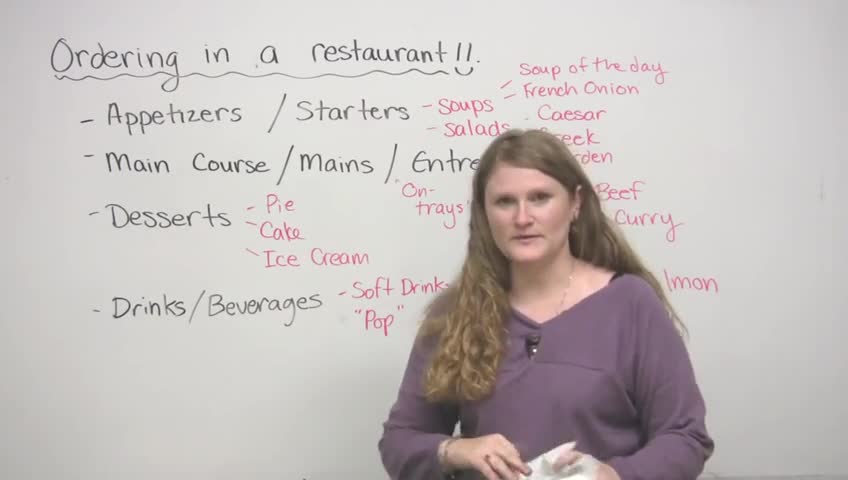 Ordering in a restaurant!!.
- Appetizers / Starters - Soups - Soup of the day
- French Onion
- Salads - Caesar
- Main Course / Mains /
On-
trays
Beef
Curry
- Desserts - Pie
- Cake
- Ice Cream
- Drinks / Beverages - Soft Drink
"Pop"